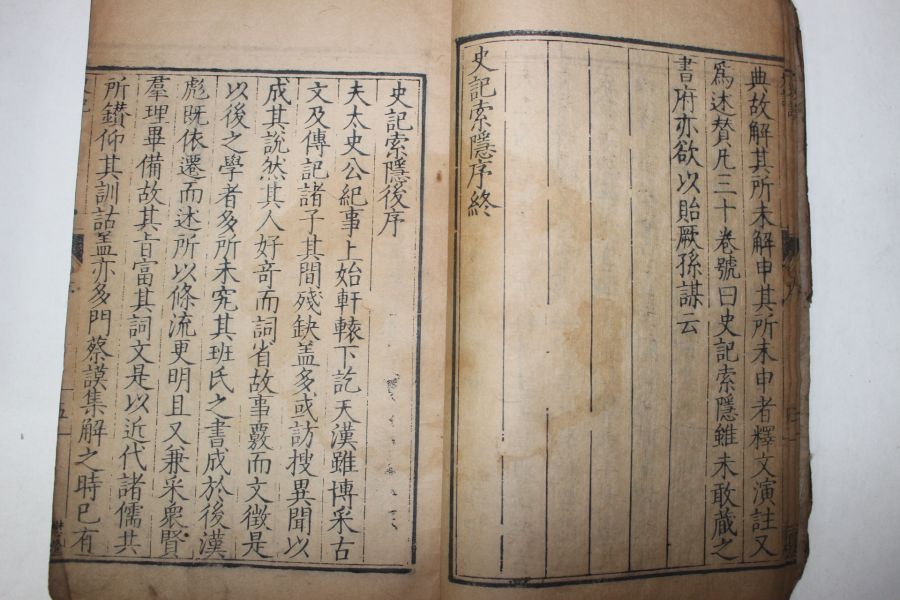 典故解其所未解申其所未申者釋文演註又
爲述贊凡三十卷號曰史記索隱雖未敢蔵之
書府亦欲以貽厥孫謀云
史記索隱序終
史記索隱後序
夫太史公紀事上始軒轅下訖天漢雖博采古
文及傳記諸子其間殘缺盖多或訪搜異聞以
成其說然其人好竒而詞省故事覈而文徵是
以後之學者多所未究其班氏之書成於後漢
彪既依遷而述所以條流更明且又兼采衆賢
羣理畢備故其旨富其詞文是以近代諸儒共
所鑚仰其訓詁盖亦多門蔡謨集解之時已有